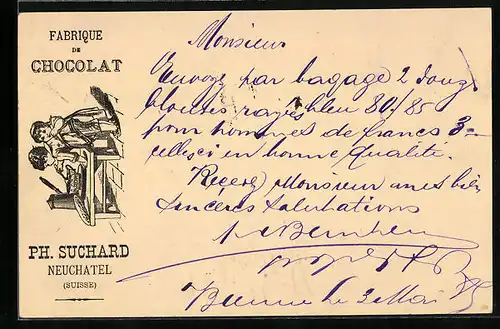 FABRIQUE
DE
CHOCOLAT
PH. SUCHARD
NEUCHATEL
(SUISSE)
Monsieur
Envoyez par bagage 2 douz
blouses rayés bleu 80/85
pour hommes de francs 3=
celles ci en bonne qualité.
Recevez Monsieur mes bien
sincères salutations
Bienne le 3 Mai